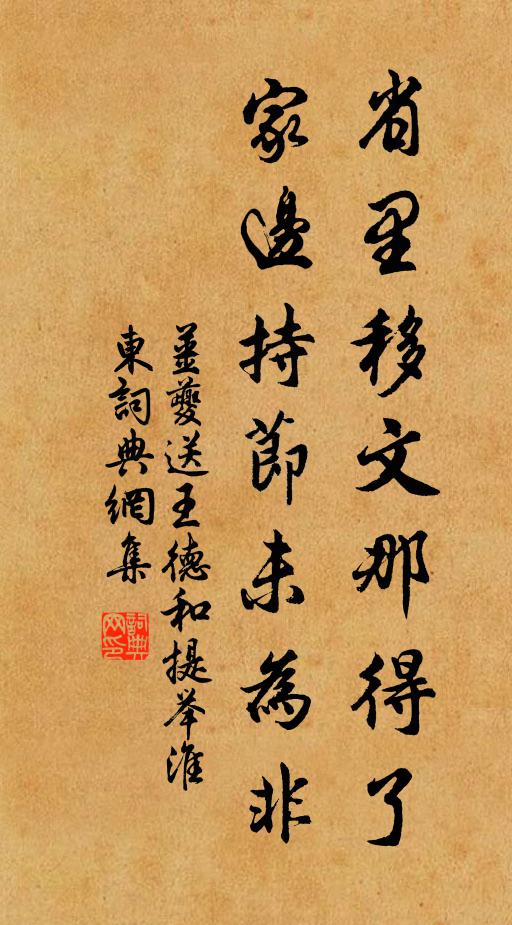 省里移文那得了
家邊持節未為非
姜夔送王德和提举淮
東詞典網集
詞典网印